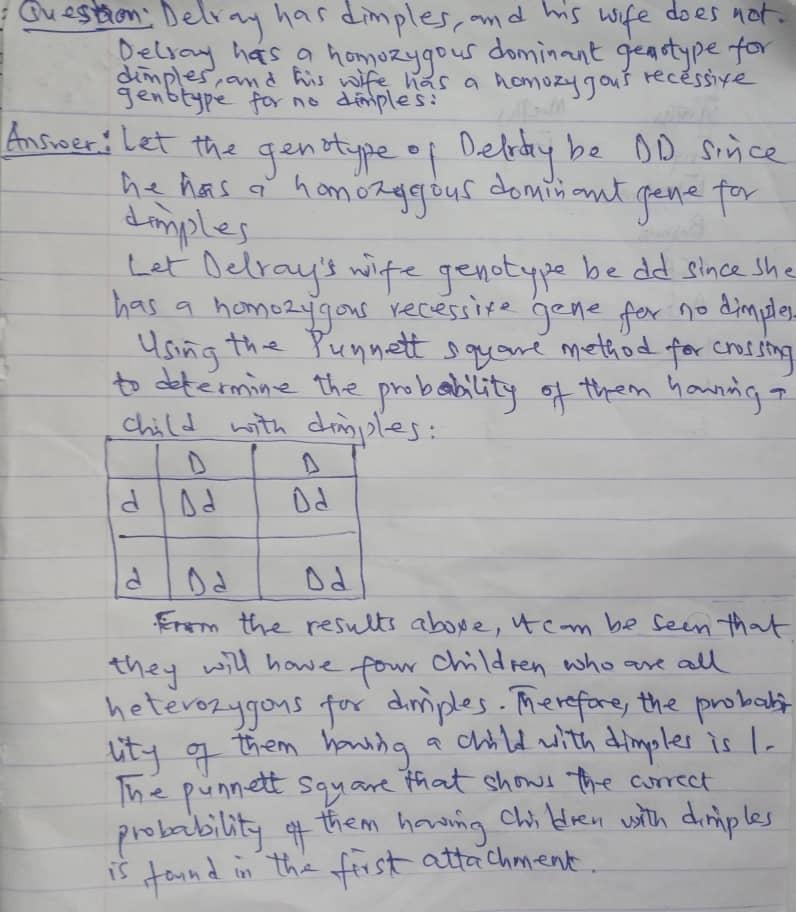 : Question: Delray has dimples, and his wife does not.
Delray has a homozygous dominant genotype for
dimples, and his wife has a homozygous recessive
genotype for no dimples:
Answer: Let the genotype of Delray be DD since
he has a homozygous dominant gene for
dimples
Let Delray's wife genotype be dd since she
has a homozygous recessive gene for no dimples.
Using the Punnett square method for crossing
to determine the probability of them having a
child with dimples:
D D
d Dd Dd
d Dd Dd
From the results above, it can be seen that
they will have four children who are all
heterozygous for dimples. Therefore, the probabi-
lity of them having a child with dimples is 1.
The punnett square that shows the correct
probability of them having children with dimples
is found in the first attachment.